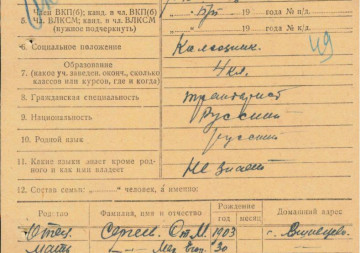 Член ВКП(б); канд. в чл. ВКП(б)
5. Чл. ВЛКСМ; канд. в чл. ВЛКСМ б/п 19 года № п/д.
(нужное подчеркнуть) 19 года № к/д.
6. Социальное положение Колхозник. 49
Образование
7. (какое уч. заведен. оконч., сколько 4 кл.
классов или курсов, где и когда)
8. Гражданская специальность тракторист
9. Национальность русский
10. Родной язык русский
11. Какие языки знает кроме род-
ного и как ими владеет Не знает
12. Состав семьи: „——“ человек, а именно:
Родство Фамилия, имя и отчество Рождение Домашний адрес
год месяц
Отец 1903
мать